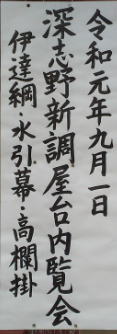 令和元年九月一日
深志野新調屋台内覧会
伊達綱・水引幕・高欄掛